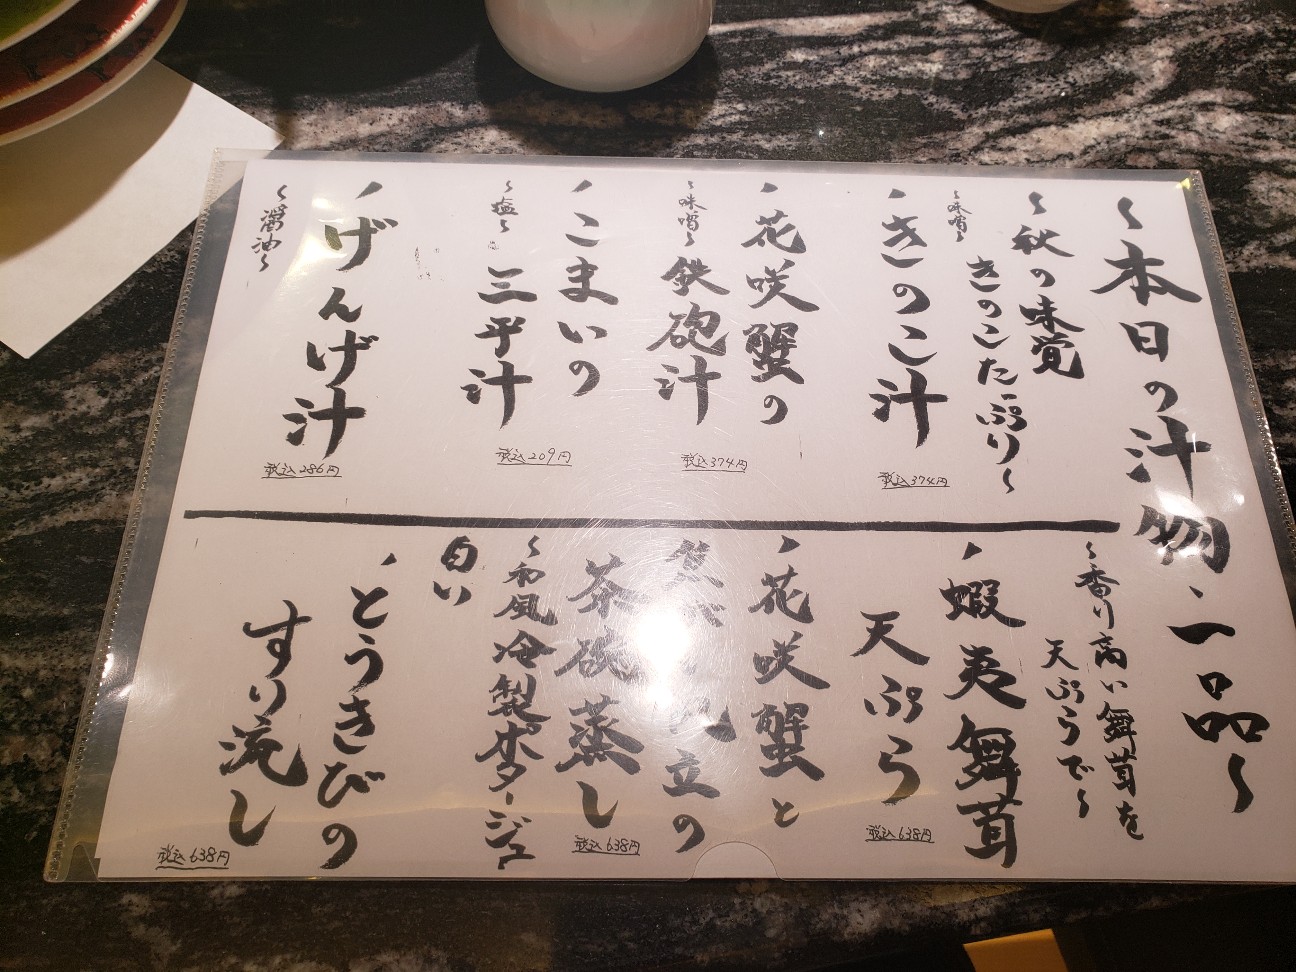 ～本日の汁物、一品～
～秋の味覚
きのこたっぷり～
、きのこ汁
～味噌～
税込374円
、花咲蟹の
鉄砲汁
～味噌～
税込374円
、こまいの
三平汁
～塩～
税込209円
、げんげ汁
～醤油～
税込286円
～香り高い舞茸を
天ぷらで～
、蝦夷舞茸
天ぷら
税込638円
、花咲蟹と
立の
茶碗蒸し
税込638円
～和風冷製ポタージュ
白い
、とうきびの
すり流し
税込638円